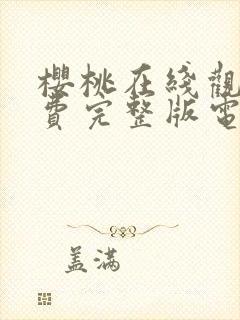 櫻桃在綫觀
費完整版電
盖满